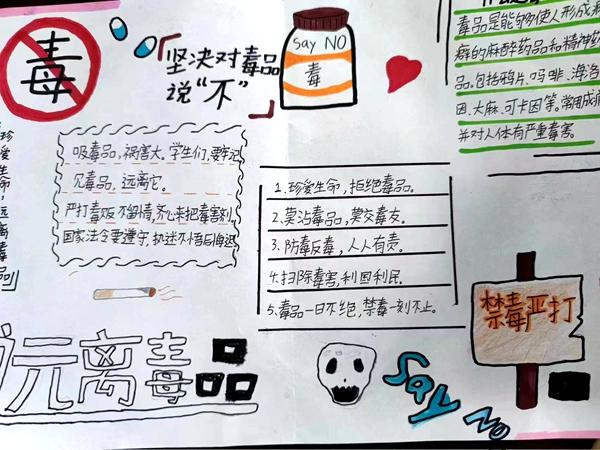 毒
坚决对毒品
说“不”
Say NO
毒
毒品是能够使人形成
癖的麻醉药品和精神
品.包括鸦片、吗啡、海洛
因、大麻、可卡因等。常用成
并对人体有严重毒害。
珍爱生命,远离毒品
吸毒品,祸害大。学生们,要牢记
冗毒品,远离它。
严打毒贩不留情,齐心来把毒害剁。
国家法令要遵守,执迷不悟后悔迟
1.珍爱生命,拒绝毒品。
2.莫沾毒品,莫交毒友。
3.防毒反毒,人人有责。
4.扫除毒害,利国利民。
5.毒品一日不绝,禁毒一刻不止。
禁毒严打
远离毒品
Say No